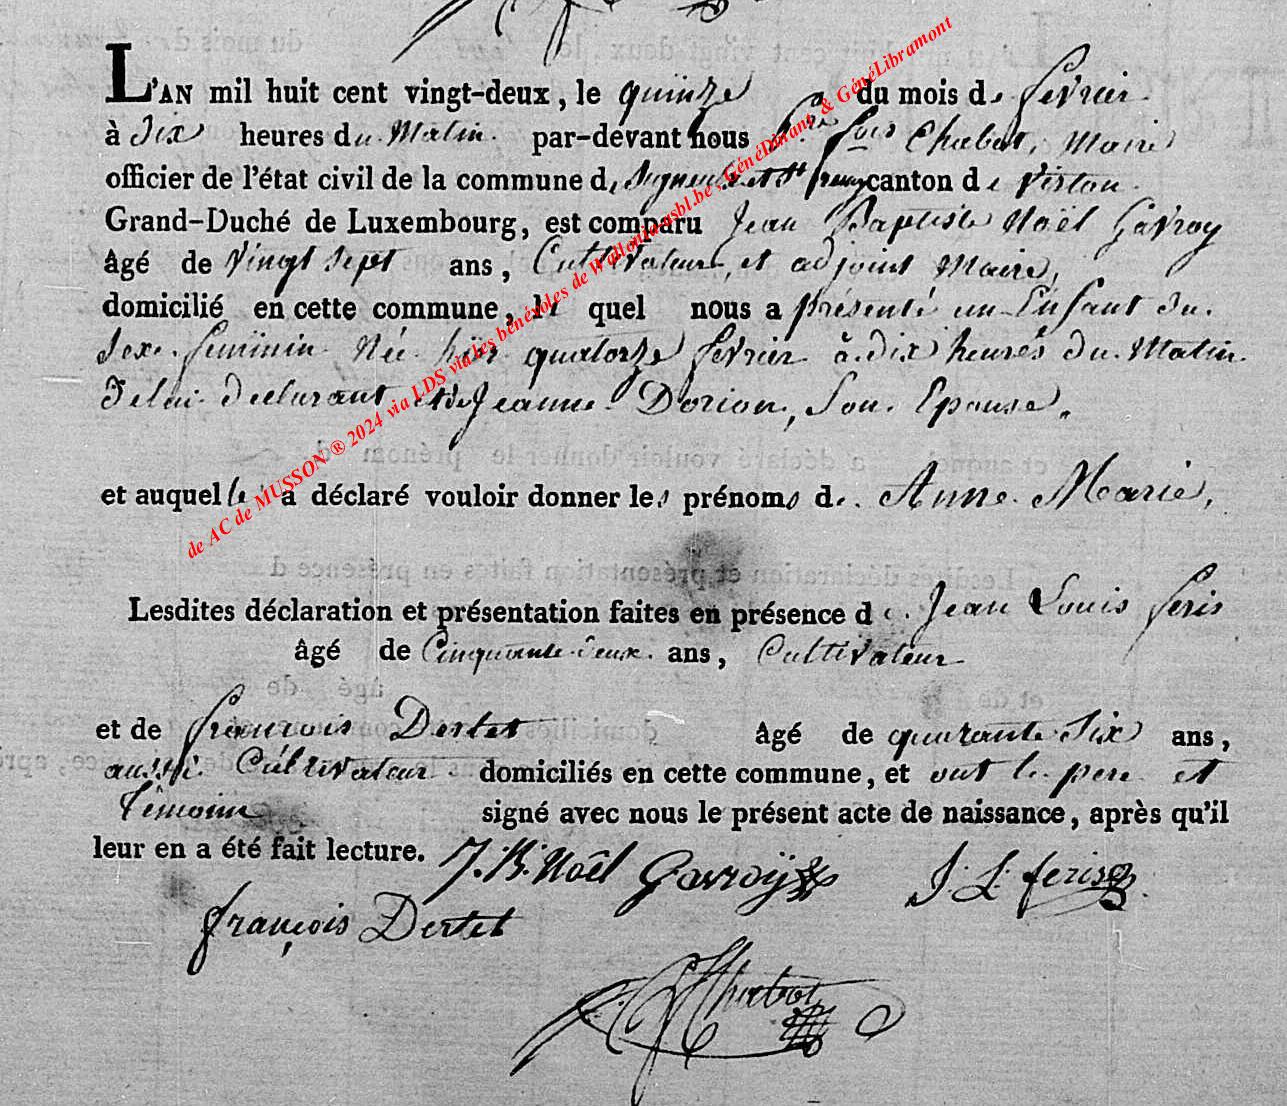 L'AN mil huit cent vingt-deux, le quinze du mois de fevrier
à Dix heures du Matin par-devant nous frois Chabot, Maire
officier de l'état civil de la commune de Signeulx et St canton de Virton
Grand-Duché de Luxembourg, est comparu Jean Baptiste Noël Gavroy
âgé de Vingt Sept ans, Cultivateur, et adjoint Maire,
domicilié en cette commune, le quel nous a présenté un Enfant du
Sexe feminin Née hier quatorze fevrier à dix heures du Matin
de lui declarant et de Jeanne Dorion, Son Epouse.
et auquel le a déclaré vouloir donner les prénoms de Anne Marie,
Lesdites déclaration et présentation faites en présence de Jean Louis feris
âgé de Cinquante deux ans, Cultivateur
et de françois Dertet âgé de quarante Six ans,
aussi Cultivateur domiciliés en cette commune, et ont le pere et
témoins signé avec nous le présent acte de naissance, après qu'il
leur en a été fait lecture. J. B. Noël Gavroy J. L. feris
françois Dertet
Chabot
de AC de MUSSON ® 2024 via LDS via les bénévoles de Wallonia-asbl.be - GénéDinant & GénéLibramont